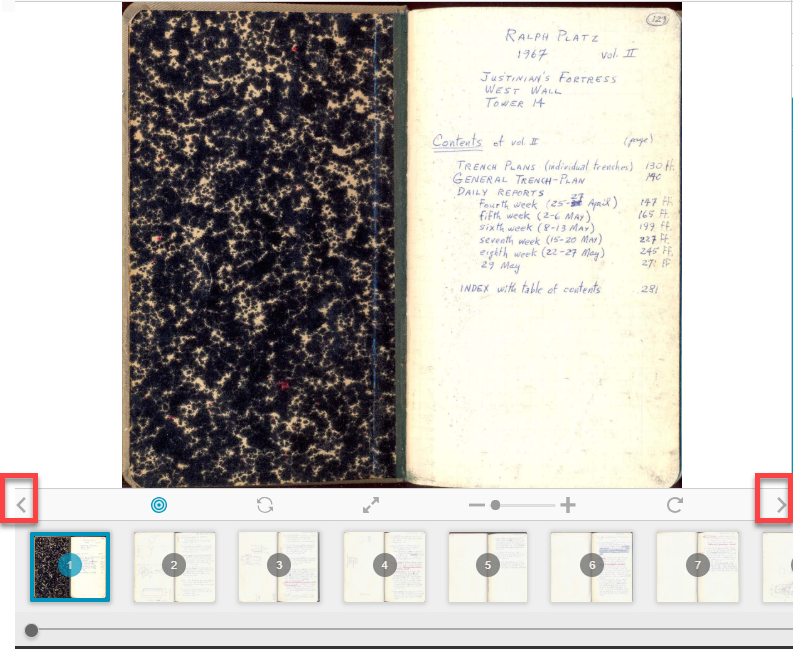 129
RALPH PLATZ
1967 vol. II
JUSTINIAN'S FORTRESS
WEST WALL
TOWER 14
Contents of vol. II (page)
TRENCH PLANS (individual trenches) 130 ff.
GENERAL TRENCH-PLAN 140
DAILY REPORTS
Fourth week (25-27 April) 147 ff.
fifth week (2-6 May) 165 ff.
sixth week (8-13 May) 199 ff.
seventh week (15-20 May) 227 ff.
eighth week (22-27 May) 245 ff.
29 May ff.
INDEX with table of contents 281
1
2
3
4
5
6
7